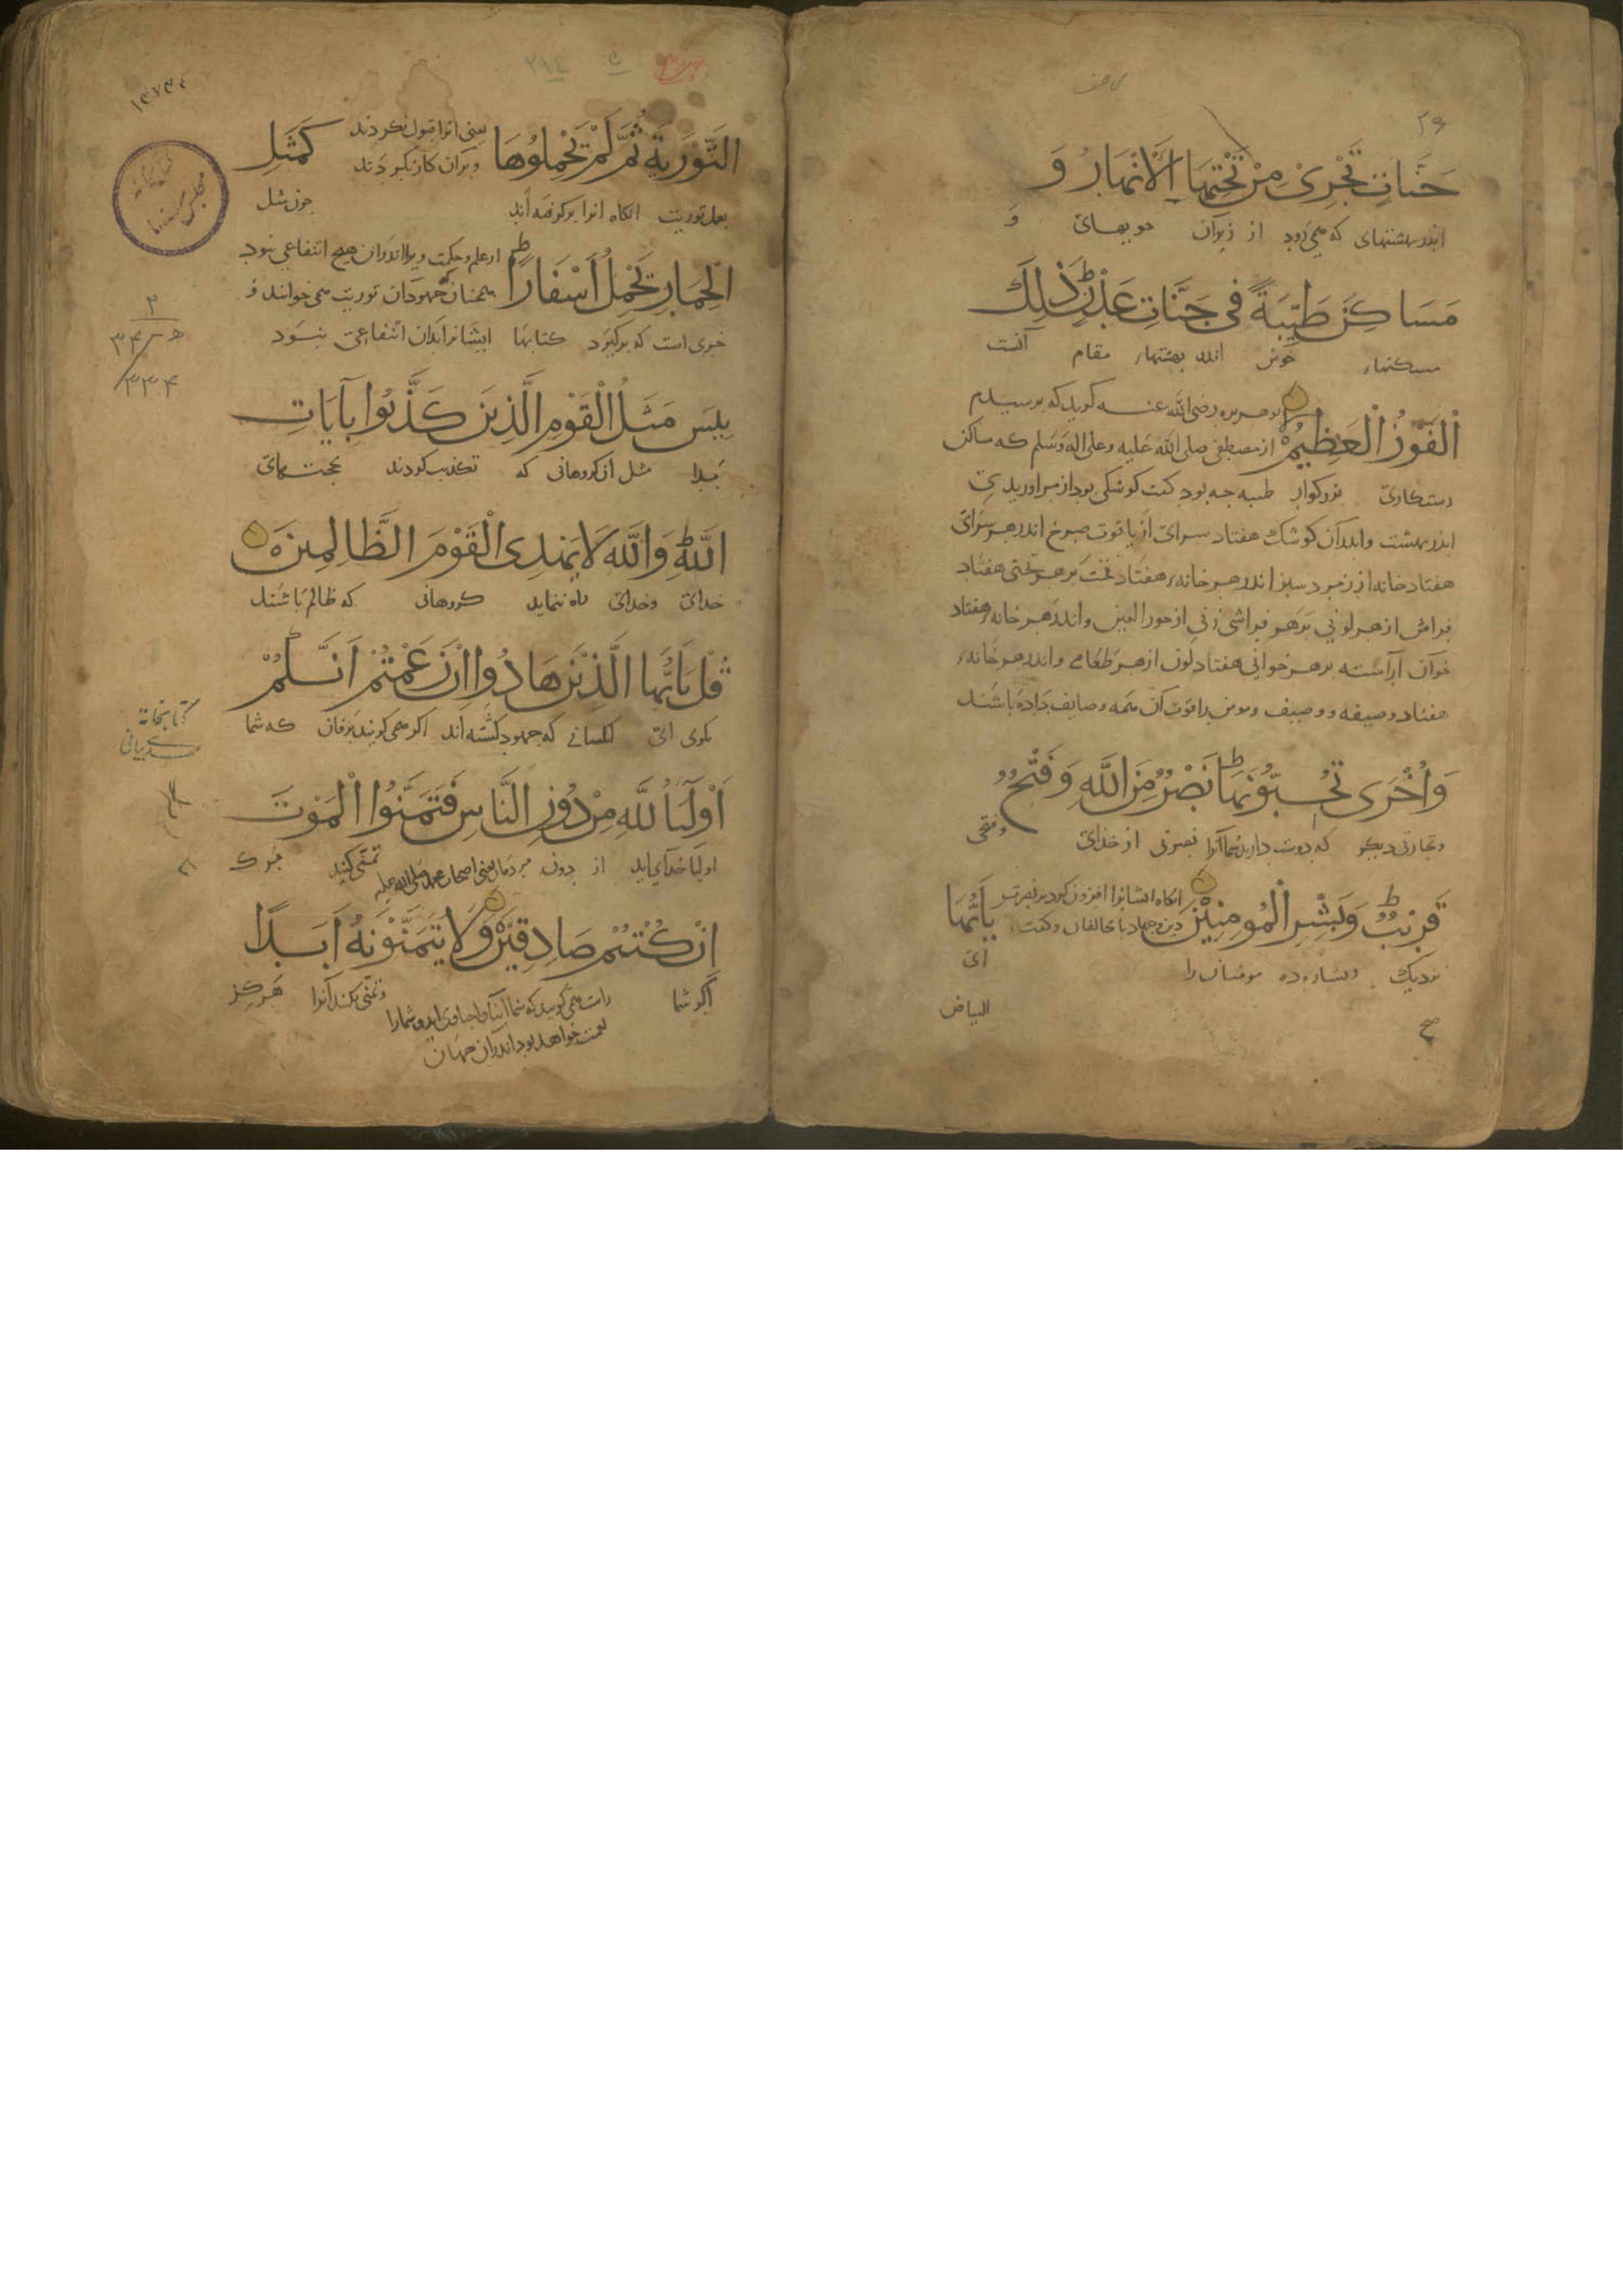 الصف
۳۶
جَنَّاتٍ تَجْرِيْ مِنْ تَحْتِهَا الْاَنْهَارُ وَ
اندر بهشتهای که همی‌رود از زیر آن جویهای و
مَسَاكِنَ طَيِّبَةً فِي جَنَّاتِ عَدْنٍ ط ذٰلِكَ
مسکنهاء خوش اندر بهشتهاء مقام آنست
الْفَوْزُ الْعَظِيْمُ بوهریره رضی الله عنه کوید که برسیدم
از مصطفی صلی الله علیه وعلی اله وسلم که مساکن
رستکاری بزرکوار طیبه جه بود کفت کوشکی بود از مروارید
اندر بهشت واندر آن کوشک هفتاد سرای از یاقوت سرخ اندر هر سرای
هفتاد خانه از زمرد سبز اندر هر خانهء هفتاد تخت بر هر تختی هفتاد
فراش از هر لونی بر هر فراشی زنی از حور العین واندر هر خانهء هفتاد
خوان آراسته بر هر خوانی هفتاد لون از هر طعامی واندر هر خانهء
هفتاد وصیفه ووصیف ومومن را قوت آن همه وصایف داده باشند
وَاُخْرَى تُحِبُّوْنَهَا ط نَصْرٌ مِنَ اللّٰهِ وَفَتْحٌ
وتجارتی دیکر که دوست دارید شما آنرا نصرتی از خدای وفتحی
قَرِيْبٌ ط وَبَشِّرِ الْمُومِنِيْنَ انکاه ایشانرا افزون کرد بر نصرت
دین وجهاد با مخالفان وکفت يٰاَيُّهَا
نزدیک وبشارت ده مومنان را ای
البیاض
صح
۳۹٤
۱۴۷۳۴
التَّوْرٰيةَ ثُمَّ لَمْ يَحْمِلُوْهَا یعنی انرا قبول نکردند
وبران کار نکردند كَمَثَلِ
بعمل توریت انکاه انرا بر نکرفته‌اند جون مثل
الْحِمَارِ يَحْمِلُ اَسْفَارًا ط از علم وحکمت ویرا اندران هیچ انتفاعی نبود
همجنان که جهودان توریت می‌خوانند و
خری است که برکیرد کتابها ایشانرا بدان انتفاعی نبود
بِيسَ مَثَلُ الْقَوْمِ الَّذِيْنَ كَذَّبُوْا بِآيَاتِ
بدا مثل آن کروهانی که تکذیب کردند بحجتهای
اللّٰهِ ط وَاللّٰهُ لَا يَهْدِى الْقَوْمَ الظَّالِمِيْنَ
خدای وخدای راه ننماید کروهانی که ظالم باشند
قُلْ يَا اَيُّهَا الَّذِيْنَ هَادُوْا اِنْ زَعَمْتُمْ اَنَّكُمْ
بکوی ای کسانی که جهود کشته‌اند اکر همی‌کویید بزفان که شما
اَوْلِيَآءُ لِلّٰهِ مِنْ دُوْنِ النَّاسِ فَتَمَنَّوُا الْمَوْتَ
اولیا خدای اید از بدون مردمان یعنی اصحاب محمد صلی الله علیه تمنی کنید مرک
اِنْ كُنْتُمْ صَادِقِيْنَ وَلَا يَتَمَنَّوْنَهٗ اَبَدًا
اکر شما راست همی‌کویید که شما وتمنی نکنند آنرا هرکز
نعمت خواهد بود اندران جهان
۲
۳۳۴
کتابخانه